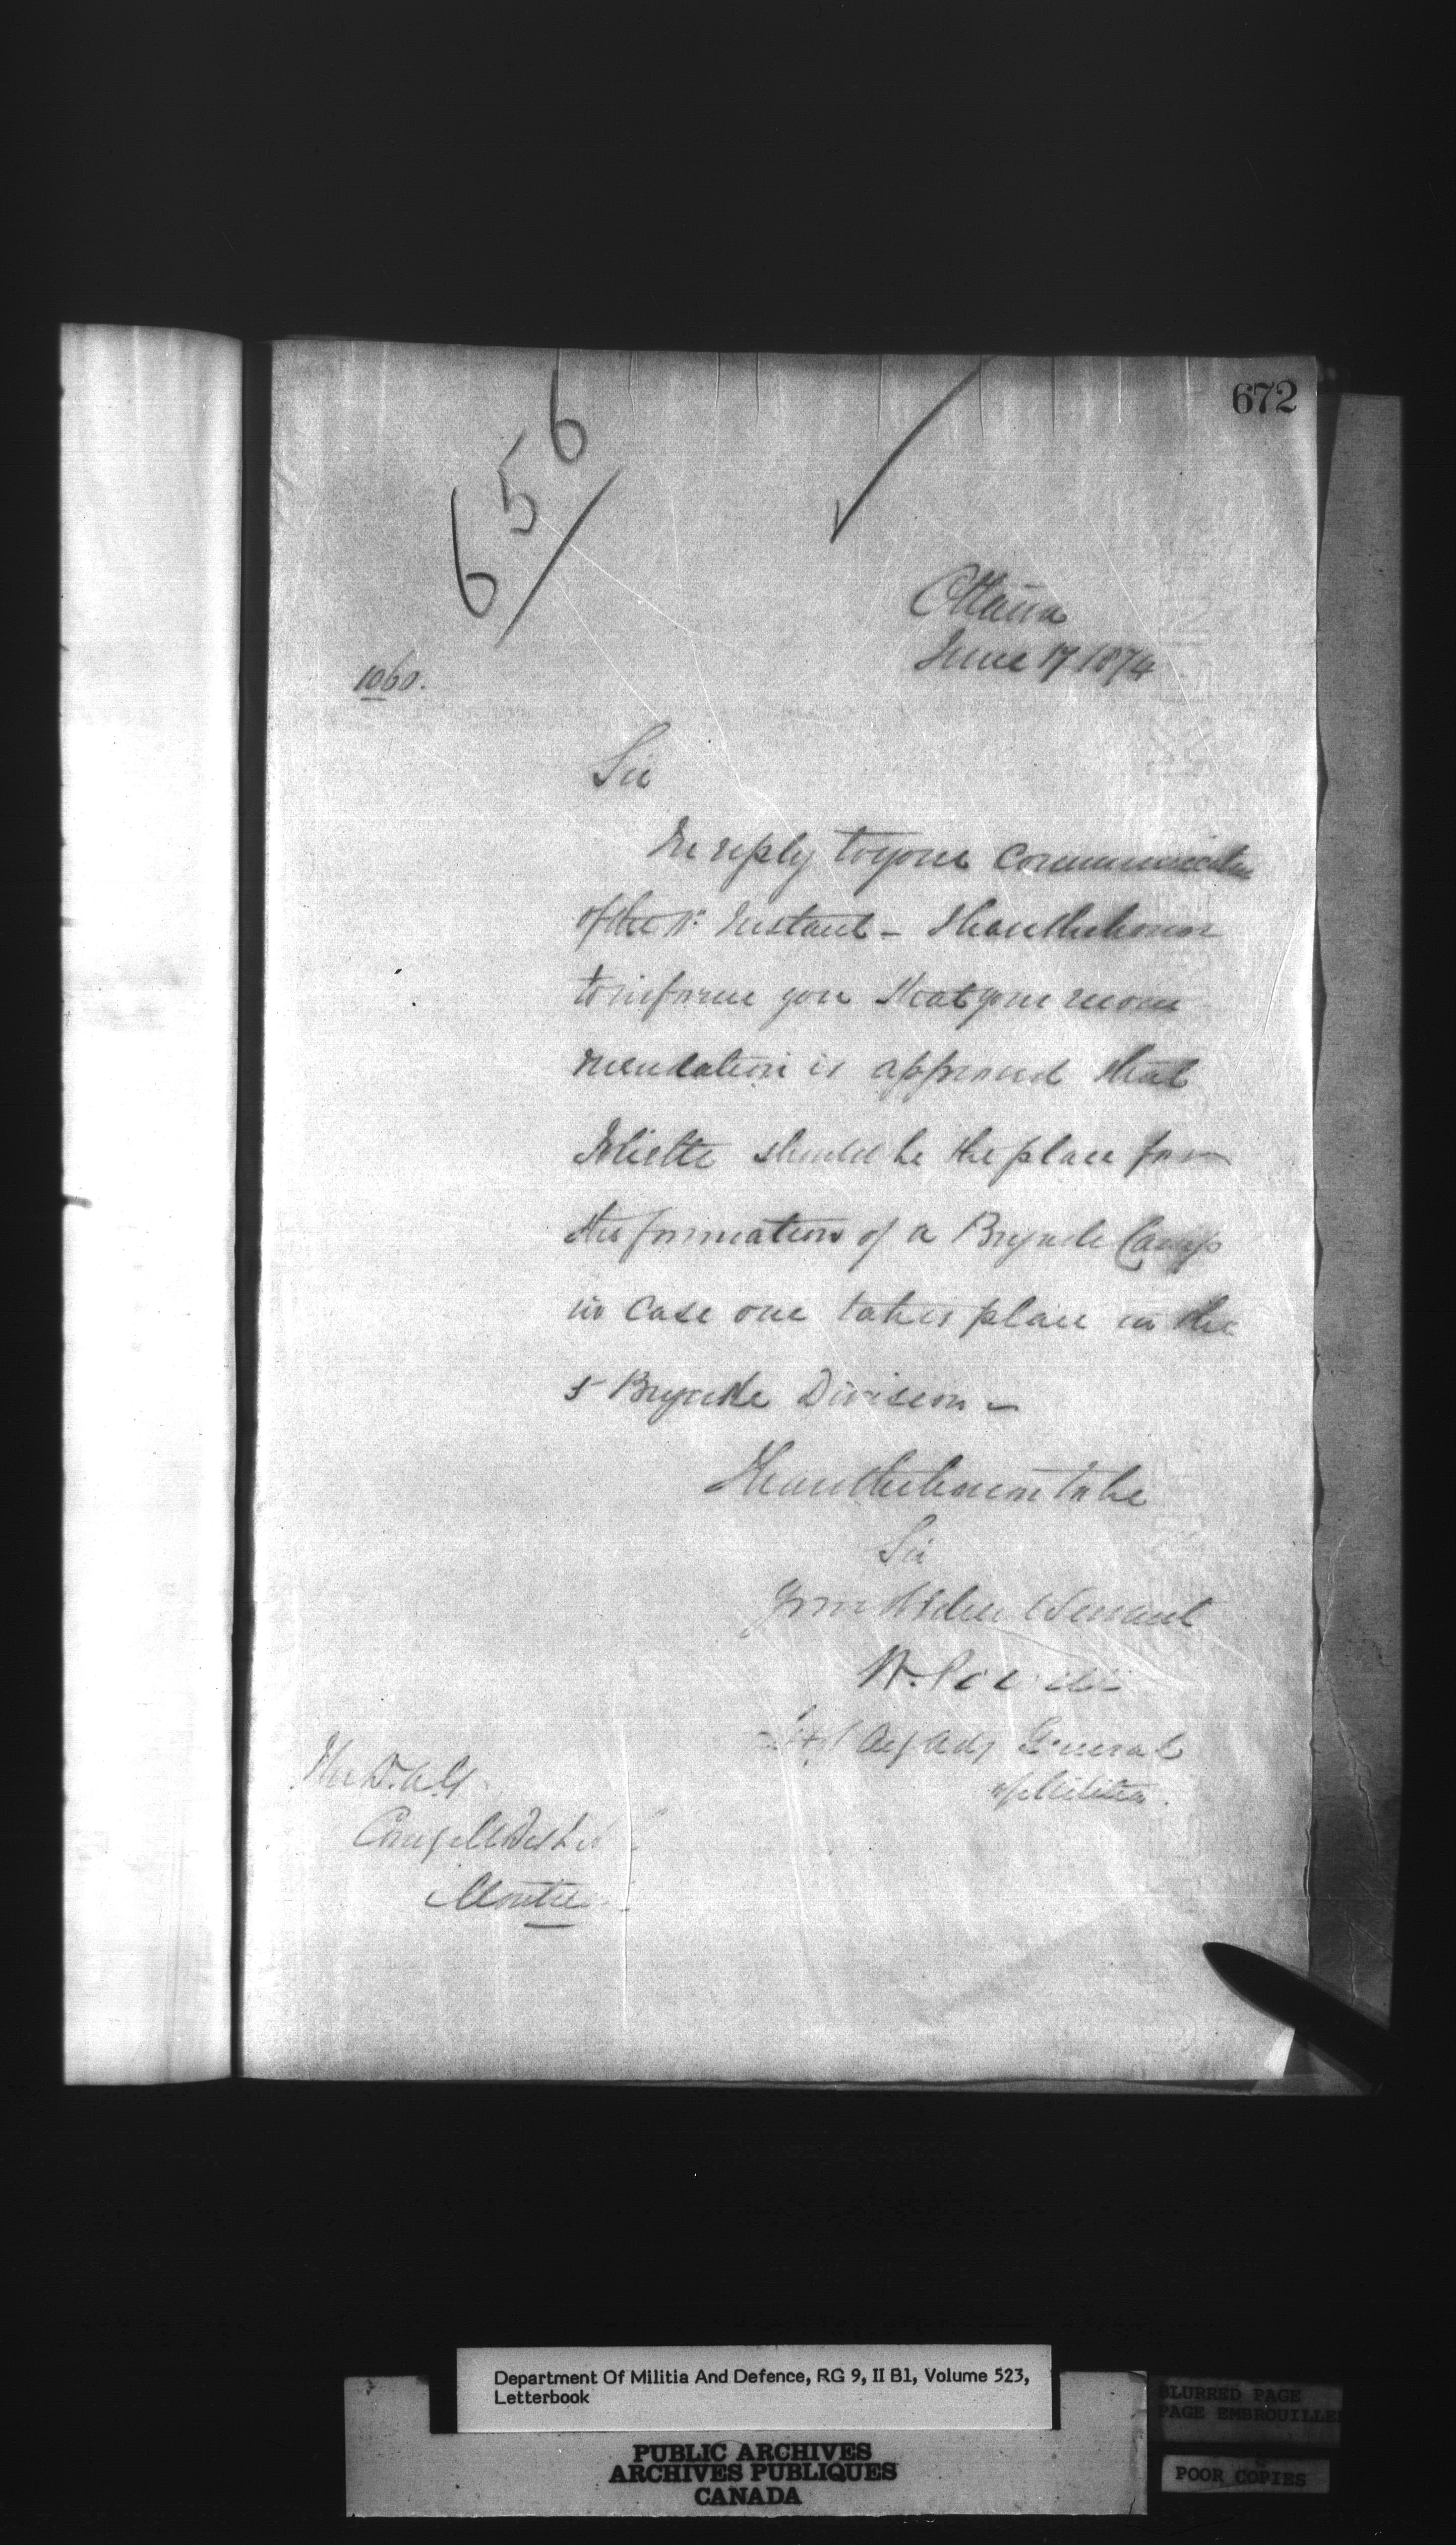 672
656
Ottawa
June 17 1874
1060.
Sir
In reply to your communication
of the Instant - I have the honor
to inform you that your recom
mendation is approved that
Joliette should be the place for
the formation of a Brigade Camp
in case one takes place in the
5 Brigade Division -
I have the honor to be
Sir
Your Obdnt Servant
W. Powell
Actg Adj General
of Militia.
The D.A.G.
Comg Dist
Montreal
Department Of Militia And Defence, RG 9, II B1, Volume 523,
Letterbook
PUBLIC ARCHIVES
ARCHIVES PUBLIQUES
CANADA
BLURRED PAGE
PAGE EMBROUILLEE
POOR COPIES